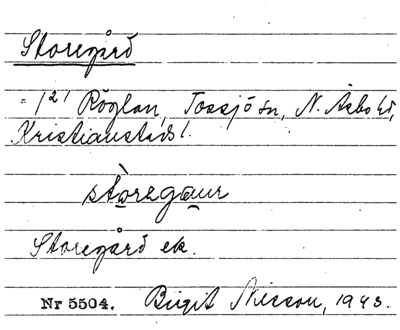 Storegård
= 1/21 Röglan, Tossjö sn, N. Åsbo hd,
Kristianstads l.
stòregaur
Storegård ek.
Nr 5504. Birgit Nilsson, 1943.